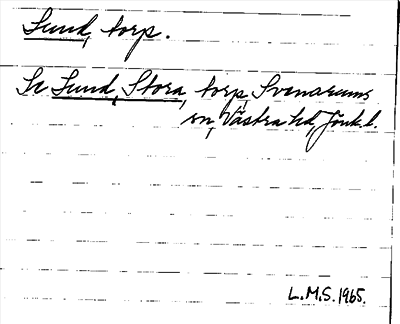 Sund, torp.
Se Sund, Stora, torp, Svenarums
sn, Västra hd, Jönk.l.
L.M.S. 1965.